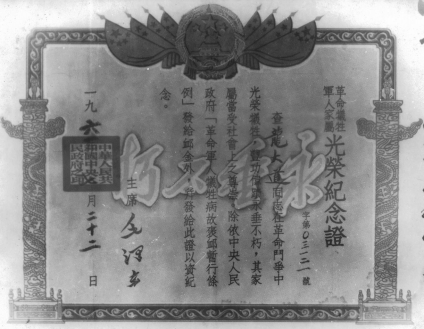 革命犧牲
軍人家屬
光榮紀念證
字第0三一二一號
查同志在革命鬥爭中
光榮犧牲，豐功偉績永垂不朽，其家
屬當受社會上之尊崇。除依中央人民
政府「革命軍人犧牲病故褒卹暫行條
例」發給卹金外，並發給此證以資紀
念。
主席 毛澤東
一九六 月二十二日
中華人民共和國中央人民政府之印